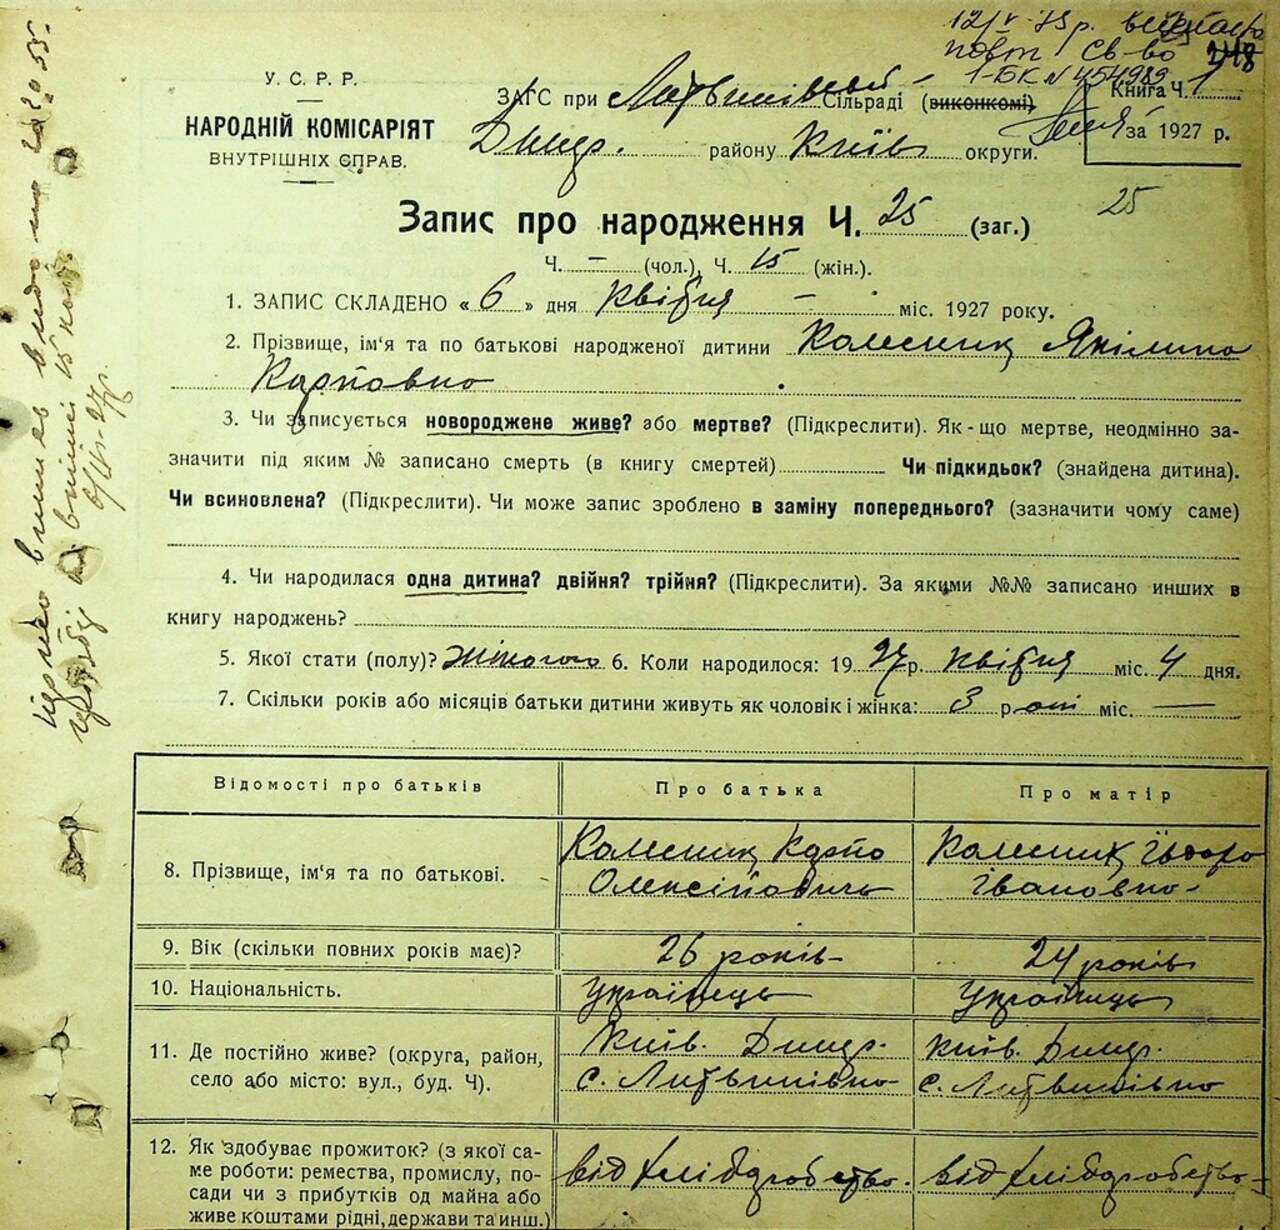 12/V-75р.
повт Св-во 248
1-БК № 454989
У. С. Р. Р.
НАРОДНІЙ КОМІСАРІЯТ
ВНУТРІШНІХ СПРАВ.
ЗАГС при Литвинівській Сільраді (виконкомі)
Димер. району Київ округи.
Книга Ч. 1
за 1927 р.
Запис про народження Ч. 25 (заг.) 25
Ч. — (чол.), Ч. 15 (жін.).
1. ЗАПИС СКЛАДЕНО « 6 » дня Квітня — міс. 1927 року.
2. Прізвище, ім'я та по батькові народженої дитини Колесник Якілина
Карповно
3. Чи записується новороджене живе? або мертве? (Підкреслити). Як-що мертве, неодмінно за-
значити під яким № записано смерть (в книгу смертей) Чи підкидьок? (знайдена дитина).
Чи всиновлена? (Підкреслити). Чи може запис зроблено в заміну попереднього? (зазначити чому саме)
4. Чи народилася одна дитина? двійня? трійня? (Підкреслити). За якими №№ записано инших в
книгу народжень?
5. Якої стати (полу)? Жіночого 6. Коли народилося: 1927 р. Квітня міс. 4 дня.
7. Скільки років або місяців батьки дитини живуть як чоловік і жінка: 3 роки міс. —
Відомості про батьків
Про батька
Про матір
8. Прізвище, ім'я та по батькові.
Колесник Карпо
Олексійовичь
Колесник
Івановно
9. Вік (скільки повних років має)?
26 років
24 років
10. Національність.
Українець
Українець
11. Де постійно живе? (округа, район,
село або місто: вул., буд. Ч).
Київ. Димер.
с. Литвинівно
Київ. Димер.
с. Литвинівно
12. Як здобуває прожиток? (з якої са-
ме роботи: ремества, промислу, по-
сади чи з прибутків од майна або
живе коштами рідні, держави та инш.)
від хлібдробство.
від хлібдробство